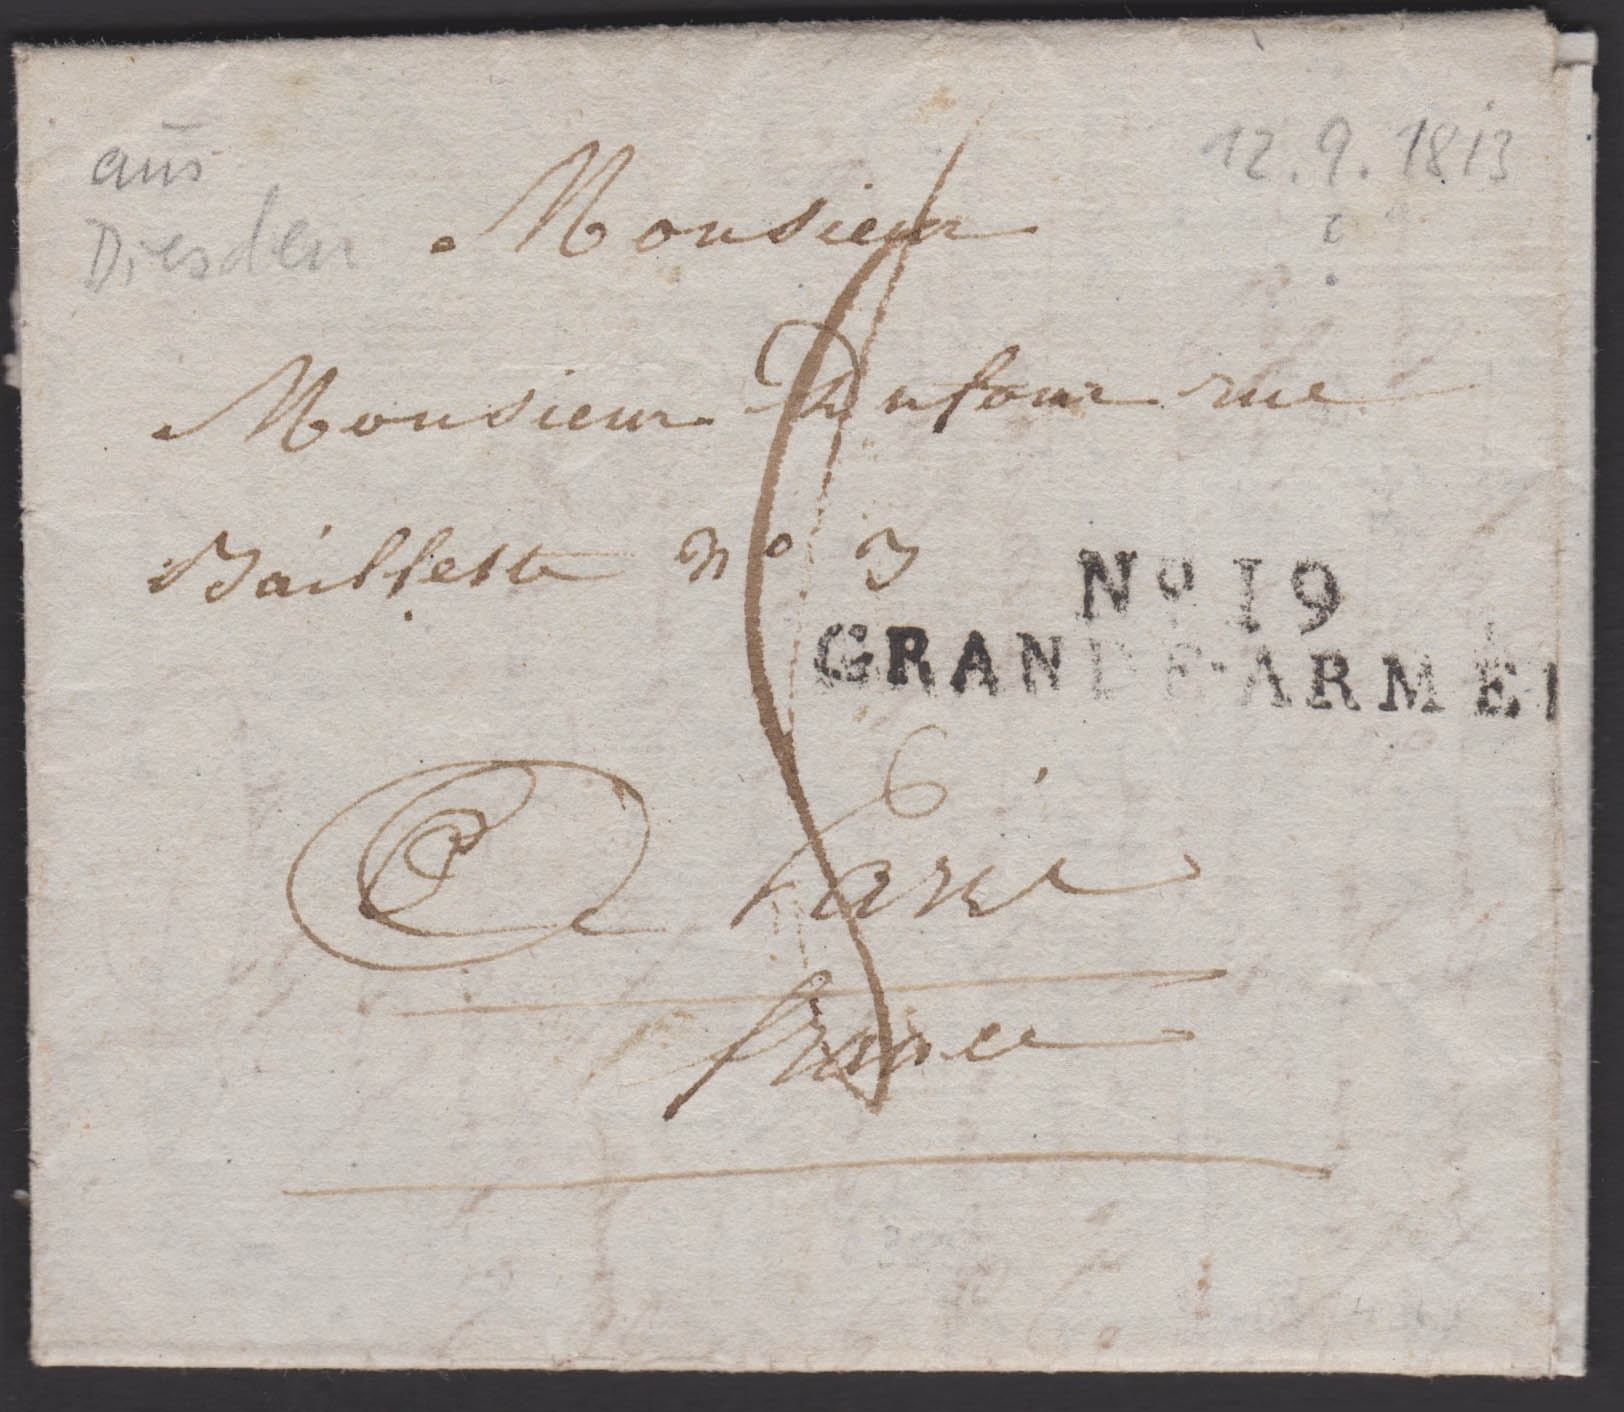 aus
Dresden
12. 9. 1813
Monsieur
Monsieur Dufour rue
Baillette no 3
No 19
GRANDE-ARMÉE
6
a Paris
france